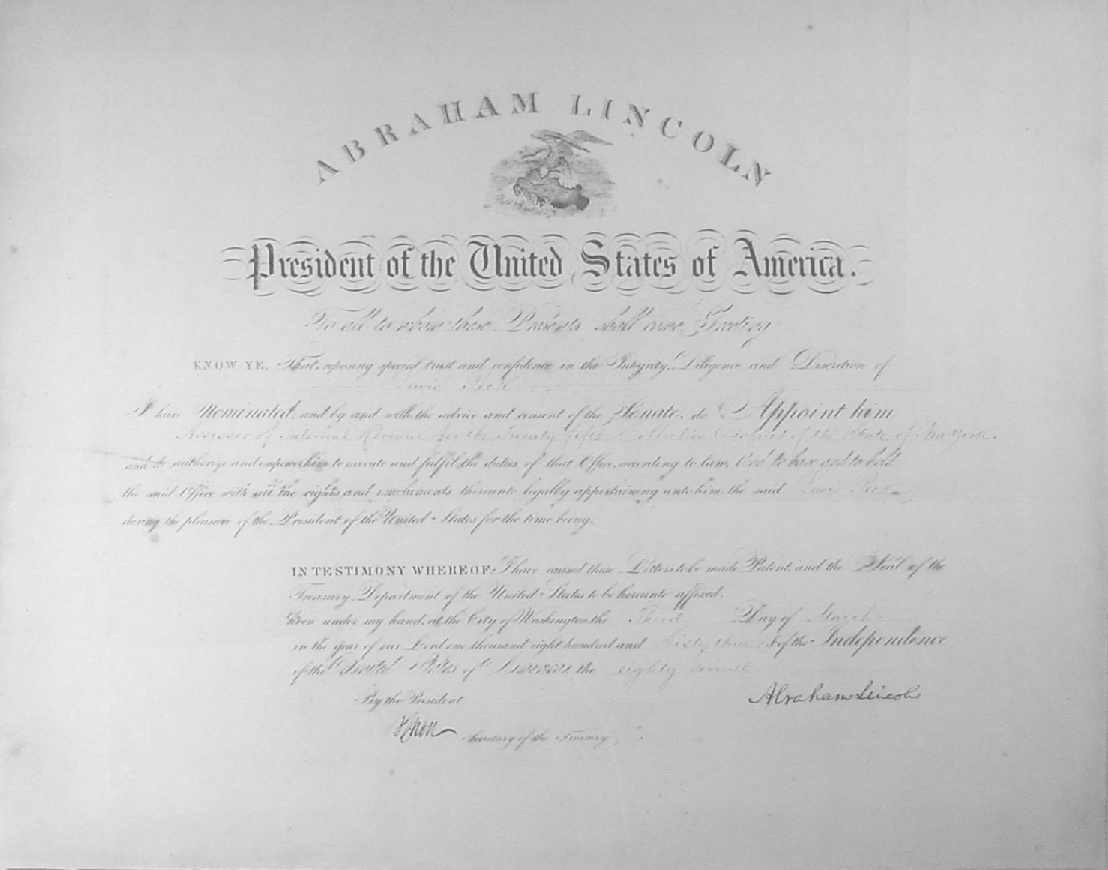 ABRAHAM LINCOLN
President of the United States of America.
To all to whom these Presents shall come, Greeting
KNOW YE, That reposing special trust and confidence in the Integrity, Diligence and Discretion of
I have Nominated, and by and with the advice and consent of the Senate, do Appoint him
Assessor of Internal Revenue for the Twenty fifth Collection District of the State of New York.
and do authorize and empower him to execute and fulfil the duties of that Office according to law, And to have and to hold
the said Office with all the rights and emoluments thereunto legally appertaining unto him the said
during the pleasure of the President of the United States for the time being.
IN TESTIMONY WHEREOF, I have caused these Letters to be made Patent, and the Seal of the
Treasury Department of the United States to be hereunto affixed.
Given under my hand, at the City of Washington, the Third Day of March
in the year of our Lord one thousand eight hundred and Sixty three & of the Independence
of the United States of America the eighty seventh
By the President
Abraham Lincoln
Secretary of the Treasury